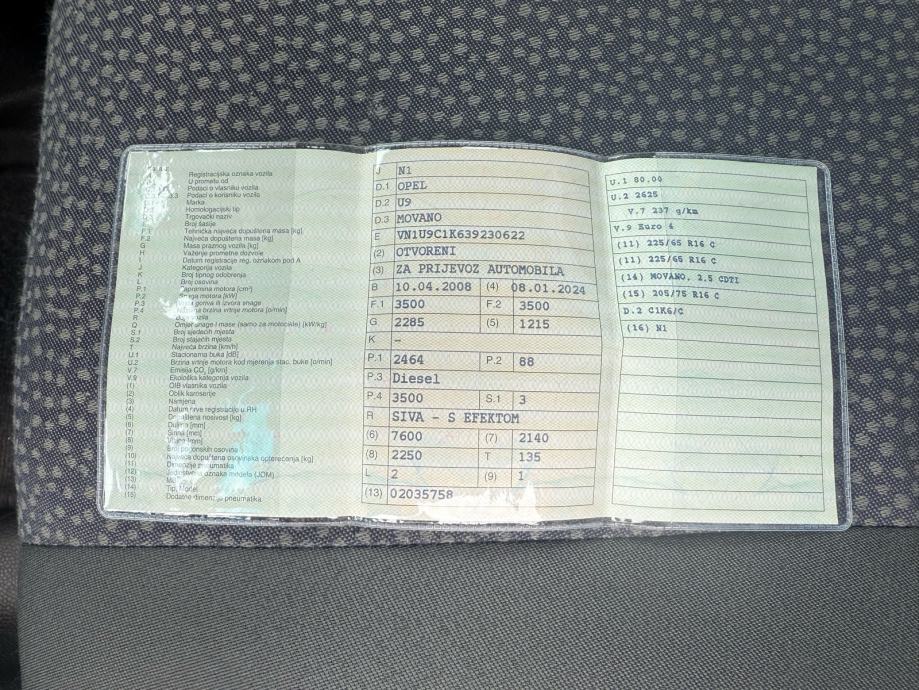 Registracijska oznaka vozila
U prometu od
Podaci o vlasniku vozila
Podaci o korisniku vozila
Marka
Homologacijski tip
Trgovački naziv
Broj šasije
F.1 Tehnička najveća dopuštena masa [kg]
F.2 Najveća dopuštena masa [kg]
G Masa praznog vozila [kg]
H Važenje prometne dozvole
I Datum registracije reg. oznakom pod A
J Kategorija vozila
K Broj tipnog odobrenja
L Broj osovina
P.1 Zapremina motora [cm³]
P.2 Snaga motora [kW]
P.3 Vrsta goriva ili izvora snage
P.4 Nazivna brzina vrtnje motora [o/min]
R Boja vozila
Q Omjer snage i mase (samo za motocikle) [kW/kg]
S.1 Broj sjedećih mjesta
S.2 Broj stajaćih mjesta
T Najveća brzina [km/h]
U.1 Stacionarna buka [dB]
U.2 Brzina vrtnje motora kod mjerenja stac. buke [o/min]
V.7 Emisija CO₂ [g/km]
V.9 Ekološka kategorija vozila
(1) OIB vlasnika vozila
(2) Oblik karoserije
(3) Namjena
(4) Datum prve registracije u RH
(5) Dopuštena nosivost [kg]
(6) Duljina [mm]
(7) Širina [mm]
(8) Visina [mm]
(9) Broj pogonskih osovina
(10) Najveća dopuštena osovinska opterećenja [kg]
(11) Dimenzije pneumatika
(12) Jedinstvena oznaka modela (JOM)
(13)
(14) Tip, Model
(15) Dodatne dimenzije pneumatika
J N1
D.1 OPEL
D.2 U9
D.3 MOVANO
E VN1U9C1K639230622
(2) OTVORENI
(3) ZA PRIJEVOZ AUTOMOBILA
B 10.04.2008 (4) 08.01.2024
F.1 3500 F.2 3500
G 2285 (5) 1215
K –
P.1 2464 P.2 88
P.3 Diesel
P.4 3500 S.1 3
R SIVA – S EFEKTOM
(6) 7600 (7) 2140
(8) 2250 T 135
L 2 (9) 1
(13) 02035758
U.1 80.00
U.2 2625
V.7 237 g/km
V.9 Euro 4
(11) 225/65 R16 C
(11) 225/65 R16 C
(14) MOVANO, 2.5 CDTI
(15) 205/75 R16 C
D.2 C1K6/C
(16) N1